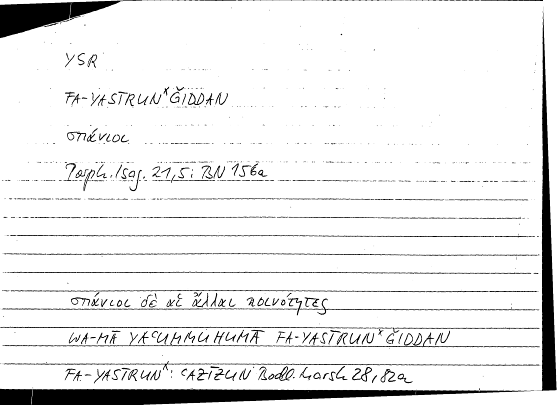 YSR
FA-YASĪRUN* ǦIDDAN
σπάνιοι
Porph. Isag. 21,5; BN 156a
σπάνιοι δὲ αἱ ἄλλαι κοινότητες
WA-MĀ YAʿUMMUHUMĀ FA-YASĪRUN* ǦIDDAN
FA-YASĪRUN*: ʿAZĪZUN Bodl. Marsh 28, 82a